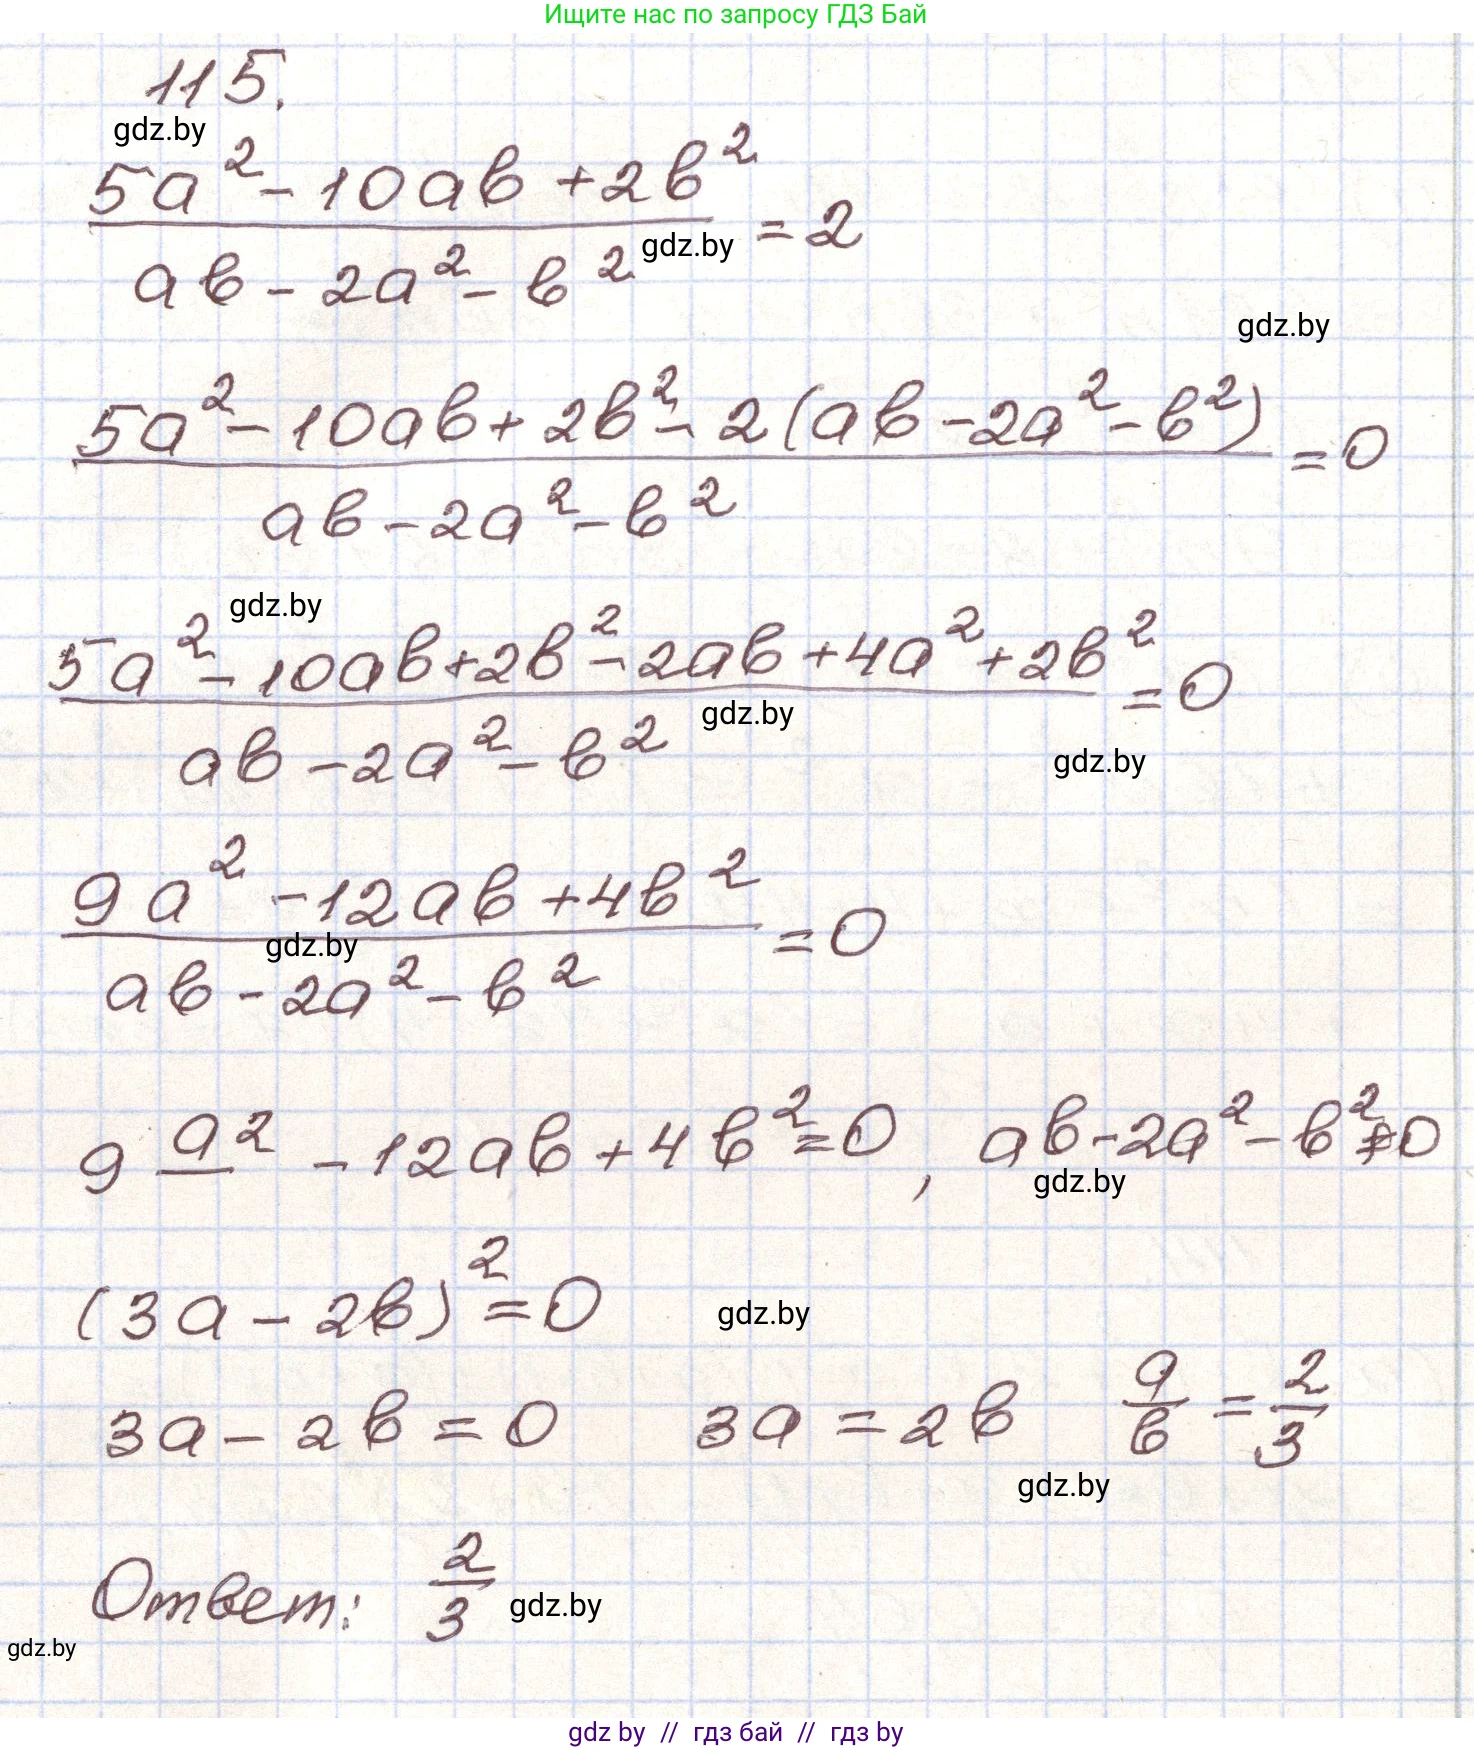 Ищите нас по запросу ГДЗ Бай
115.
gdz.by
(5a² - 10ab + 2b²)/(ab - 2a² - b²) = 2
gdz.by
gdz.by
(5a² - 10ab + 2b² - 2(ab - 2a² - b²))/(ab - 2a² - b²) = 0
gdz.by
(5a² - 10ab + 2b² - 2ab + 4a² + 2b²)/(ab - 2a² - b²) = 0
gdz.by
gdz.by
(9a² - 12ab + 4b²)/(ab - 2a² - b²) = 0
gdz.by
9a² - 12ab + 4b² = 0, ab - 2a² - b² ≠ 0
gdz.by
(3a - 2b)² = 0
gdz.by
3a - 2b = 0 3a = 2b a/b = 2/3
gdz.by
Ответ: 2/3
gdz.by
gdz.by
gdz by // гдз бай // гдз by